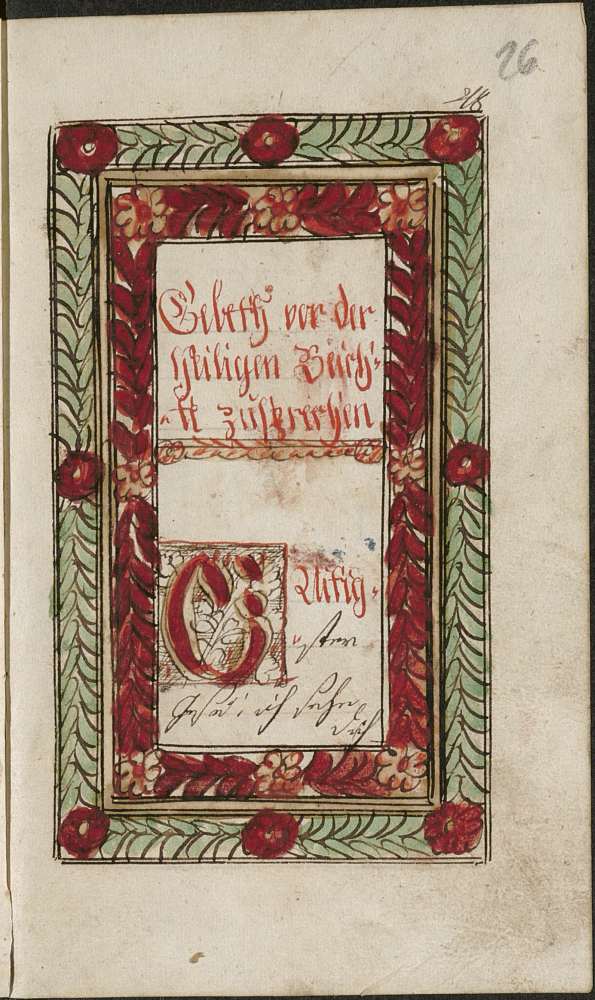 26
Gebeth vor der
Heiligen Beich=
=te zusprechen
GÜtig=
=ster
Jesu! ich sehe
dich